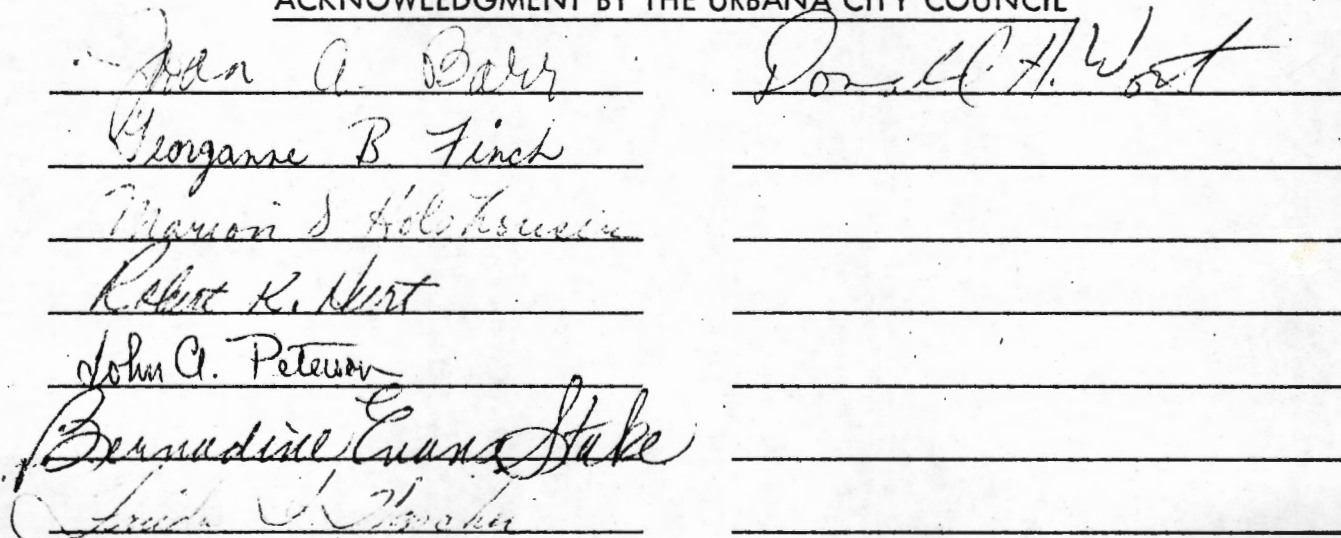 ACKNOWLEDGMENT BY THE URBANA CITY COUNCIL
Joan A. Barr
Georganne B. Finch
Marion S Holshouser
Robert K. Hurt
John A. Peterson
Bernadine Evans Stake
Donald H. Wort